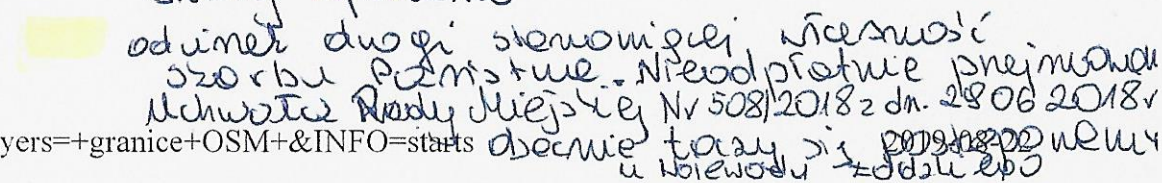 odcinek drogi stanowiącej własność
Skarbu Państwa. Nieodpłatnie przejmowan
Uchwałą Rady Miejskiej Nr 508/2018 z dn. 28 06 2018 r
yers=+granice+OSM+&INFO=starts obecnie toczy się
u Wojewody